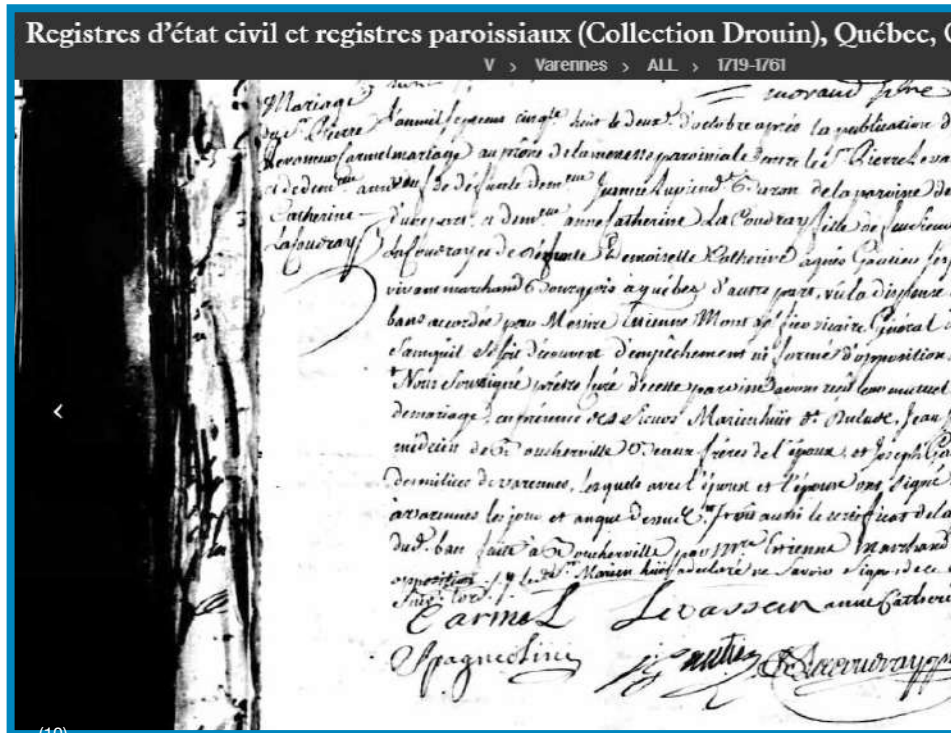 Registres d'état civil et registres paroissiaux (Collection Drouin), Québec,
V > Varennes > ALL > 1719-1761
Mariage
du Sr. Pierre
Levasseur Carmel
et de demelle anne
Catherine
Lacoudray
L'anmil septcens cinqte. huit le deuxe. d'octobre après la publication d
mariage au prône de la messe paroissiale entre le Sr. Pierre Leva
veuf de défunte demelle Jeanne Lupien dt. Baron de la paroisse de
d'une part, et demelle anne Catherine La Coudray fille de
Lacoudray et de défunte Demoiselle Catherine agnès Gautier
vivant marchand Bourgeois à quebec d'autre part, vû la dispense
bans accordée par Messire Etienne Montgolfier vicaire Général
sans qu'il se soit découvert d'empêchement ni formé d'opposition
Nous Soussigné prêtre Curé de cette paroisse avons reçû leur mutuel
de mariage, en présence des Sieurs Marien hüit dt. Dulude, Jean
médecin de Boucherville beaux frères de l'époux, et Joseph
des milices de varennes, lesquels avec l'époux et l'épouse ont signé
à varennes les jour et an que dessus. le certificat de la
dud. ban faite à Boucherville par Mre Etienne Marchand
opposition led. Sr. Marien hüit a déclaré ne Savoir signer de ce
Suiv. lord.
Carmel Levasseur anne Catheri
Spagniolini Gautier Lacoudray
(10)